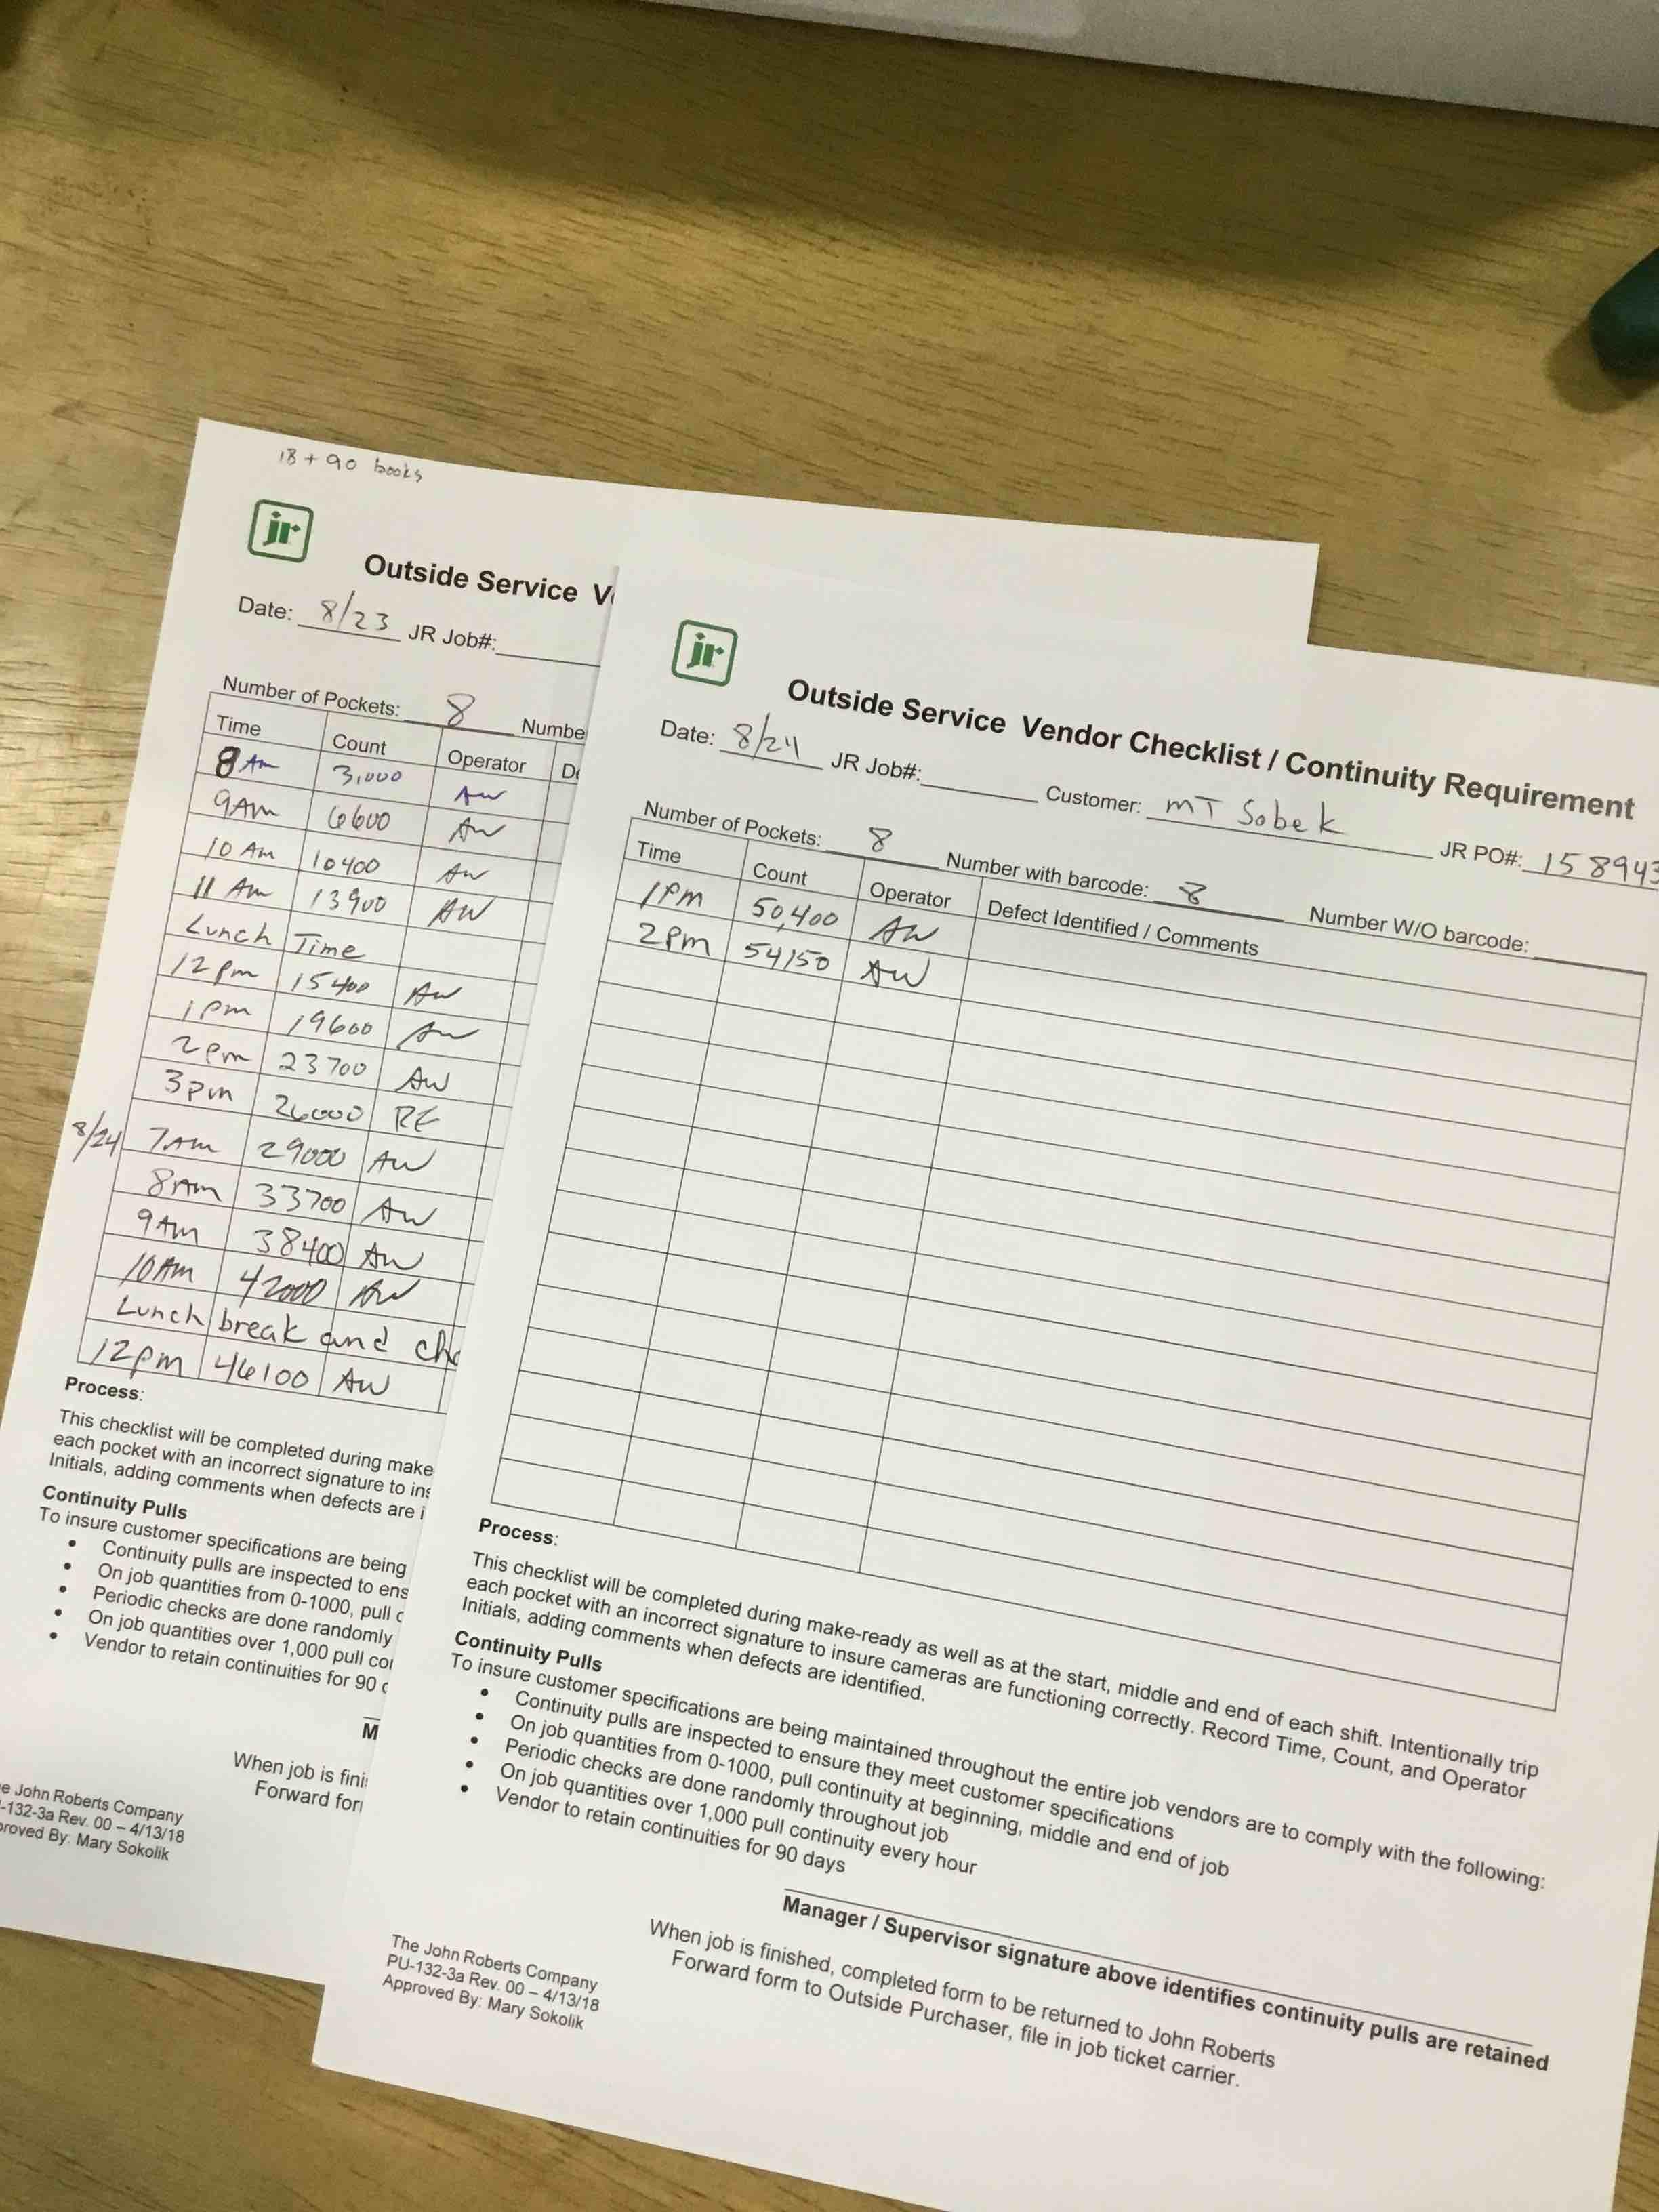 18 + 90 books
jr
Outside Service
Date: 8/23 JR Job#:
Number of Pockets: 8
Time Count Operator
8 Am 3,000 AW
9AM 6600 AW
10 Am 10400 AW
11 Am 13900 AW
Lunch Time
12 pm 15400 AW
1 pm 19600 AW
2 pm 23700 AW
3 pm 26000 RE
8/24 7 Am 29000 AW
8 Am 33700 AW
9 AM 38400 AW
10 AM 42000 AW
Lunch break and
12 pm 46100 AW
Process:
This checklist will be completed during make
each pocket with an incorrect signature to
Initials, adding comments when defects are
Continuity Pulls
To insure customer specifications are being
• Continuity pulls are inspected to
• On job quantities from 0-1000, pull
• Periodic checks are done randomly
• On job quantities over 1,000 pull
• Vendor to retain continuities for 90
When job is
Forward
John Roberts Company
-132-3a Rev. 00 – 4/13/18
By: Mary Sokolik
jr
Outside Service Vendor Checklist / Continuity Requirement
Date: 8/24 JR Job#: Customer: MT Sobek JR PO#: 158943
Number of Pockets: 8 Number with barcode: 8 Number W/O barcode:
Time Count Operator Defect Identified / Comments
1 PM 50,400 AW
2 pm 54150 AW
Process:
This checklist will be completed during make-ready as well as at the start, middle and end of each shift. Intentionally trip
each pocket with an incorrect signature to insure cameras are functioning correctly. Record Time, Count, and Operator
Initials, adding comments when defects are identified.
Continuity Pulls
To insure customer specifications are being maintained throughout the entire job vendors are to comply with the following:
• Continuity pulls are inspected to ensure they meet customer specifications
• On job quantities from 0-1000, pull continuity at beginning, middle and end of job
• Periodic checks are done randomly throughout job
• On job quantities over 1,000 pull continuity every hour
• Vendor to retain continuities for 90 days
Manager / Supervisor signature above identifies continuity pulls are retained
When job is finished, completed form to be returned to John Roberts
Forward form to Outside Purchaser, file in job ticket carrier.
The John Roberts Company
PU-132-3a Rev. 00 – 4/13/18
Approved By: Mary Sokolik